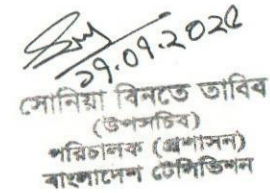 ২৭.০৭.২০২৫
সোনিয়া বিনতে তাবিব
(উপসচিব)
পরিচালক (প্রশাসন)
বাংলাদেশ টেলিভিশন